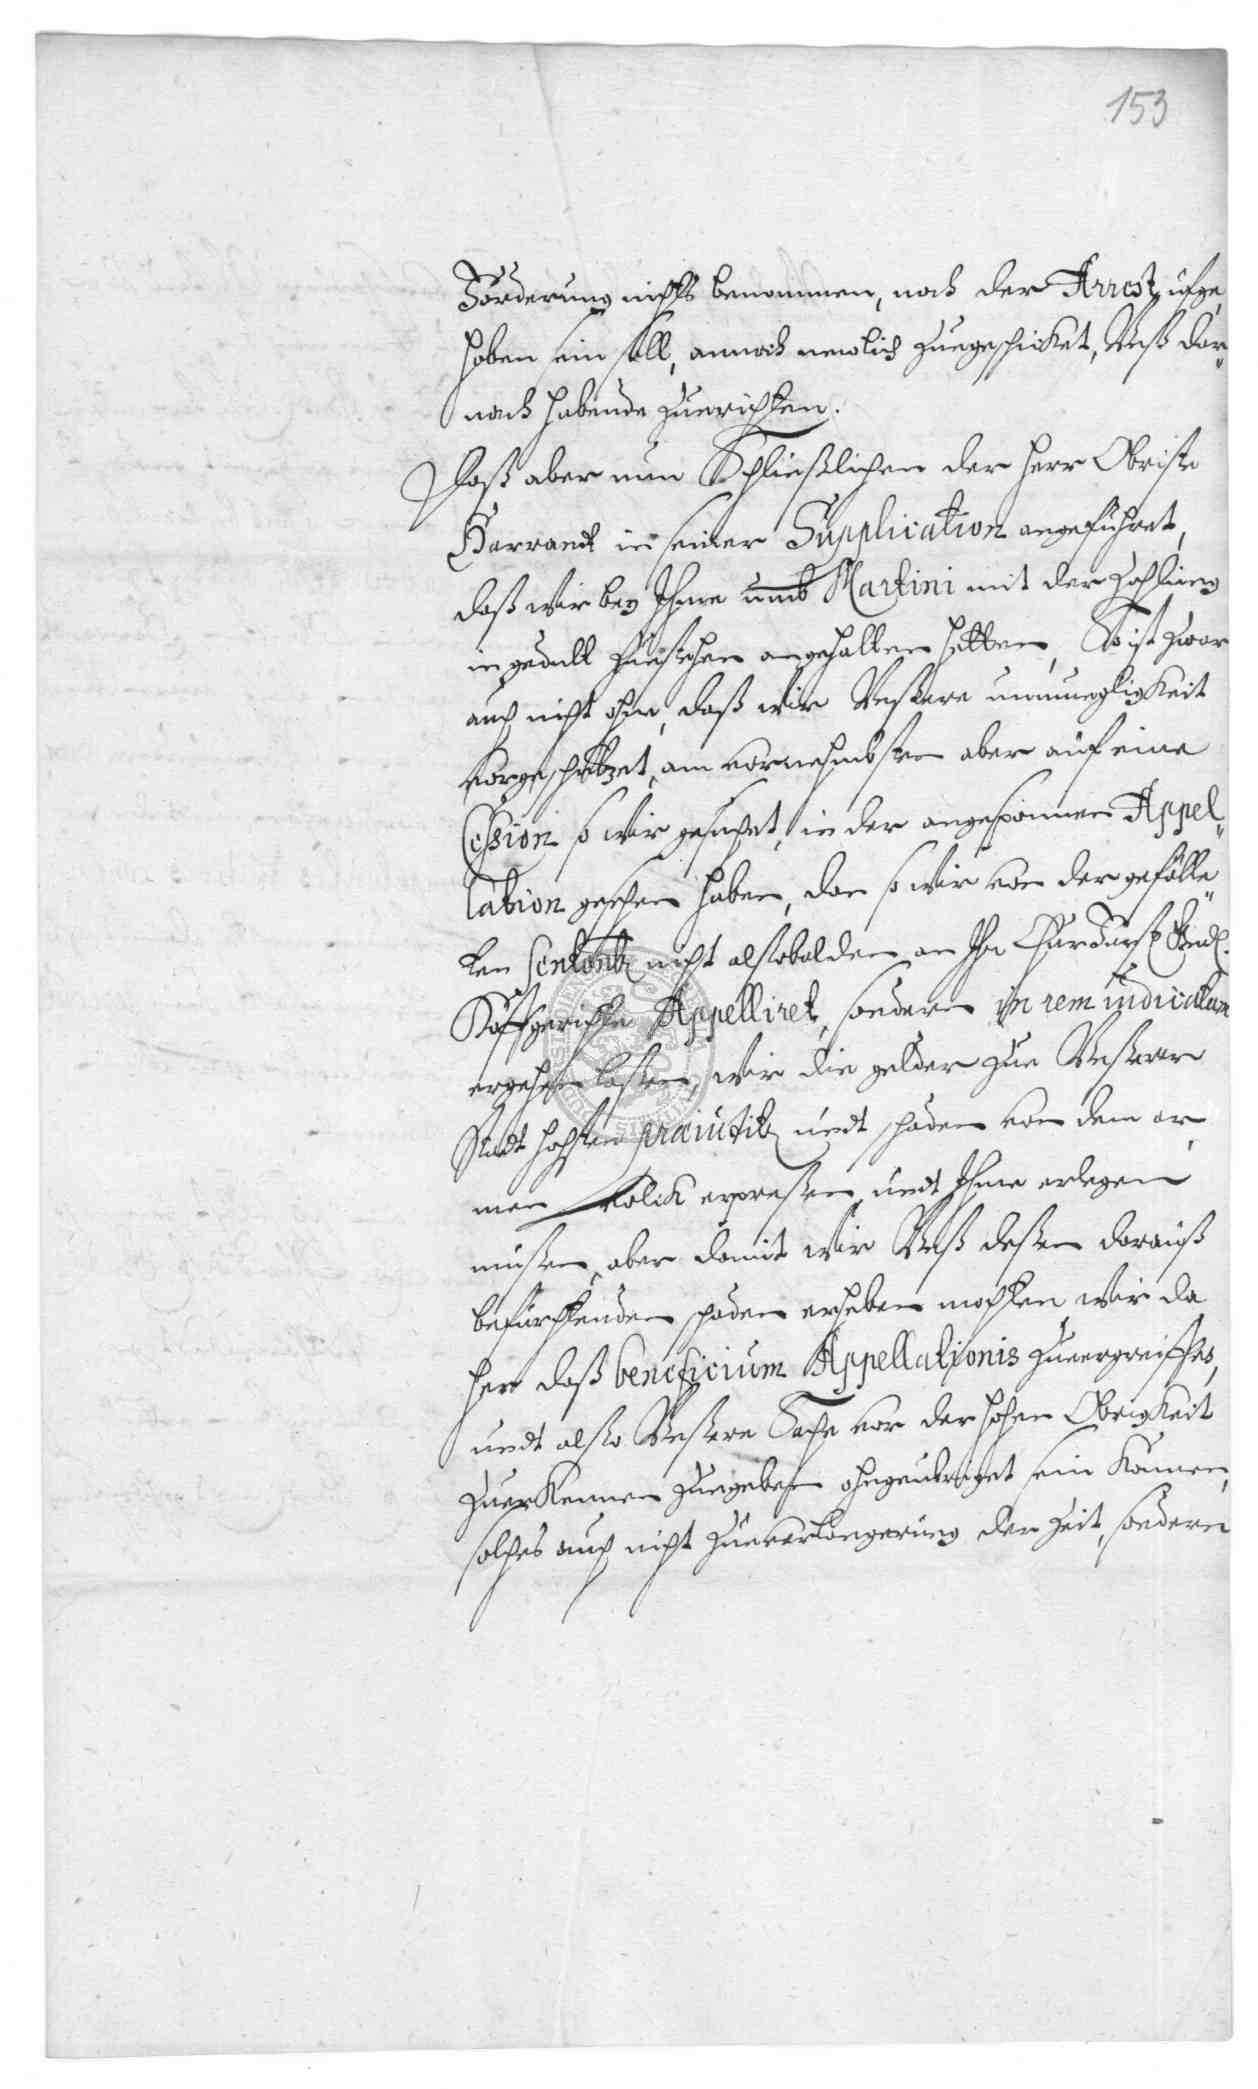 153
Förderung nichts benommen, noch der Arrest ufge,
hoben sein soll, annoch newlich zuegeschicket, Unß dar"
nach habende zuerichten.
Daß aber nun Schließlichen der Herr Obriste
Harrandt in seiner Supplication angeführet,
daß wir bey Ihme umb Martini mit der zahlung
in gedult zuestehen angehalten hetten, So ist zwar
auch nicht ohne, daß wir Unsere unmueglichkeit
vorgeschützet, am vornehmbsten aber auf eine
Cession so wir gesuchet, in der angesponnen Appel"
lation gesehen haben, dan so wir von der gefälle"
ten Sentent nicht alsobalden an Ihr Churfürstl
Hoffgerichte Appelliret, sondern in rem iudicatam
ergehen laßen, wir die gelder zue Unserer
Stadt hohsten praeiuditz undt schaden von dem ar,
men volck erpreßen undt Ihme erlegen
müßen, aber damit wir Unß deßen darauß
befürchtenden schaden erheben mochten wir da
hero daß beneficium Appellationis zueergreiffen,
undt also Unsere Sache vor der hohen Obrigkeit
zuerkennen zuegeben ohngeubriget sein können,
solches auch nicht zueverlengerung der Zeit, sondern